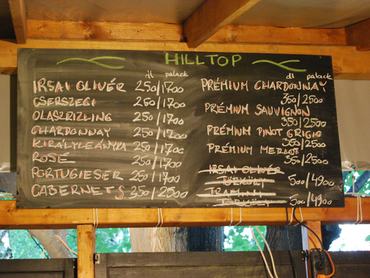 HILLTOP
dl palack
IRSAI OLIVÉR 250/1700
CSERSZEGI 250/1700
OLASRIZLING 250/1700
CHARDONNAY 250/1700
KIRÁLYLEÁNYKA 250/1700
ROSÉ 250/1700
PORTUGIESER 250/1700
CABERNETS 350/2500
dl palack
PRÉMIUM CHARDONNAY
350/2500
PRÉMIUM SAUVIGNON
350/2500
PRÉMIUM PINOT GRIGIO
350/2500
PRÉMIUM MERLOT
350/2500
IRSAI OLIVÉR
500/4900
TRAMINI
500/4900